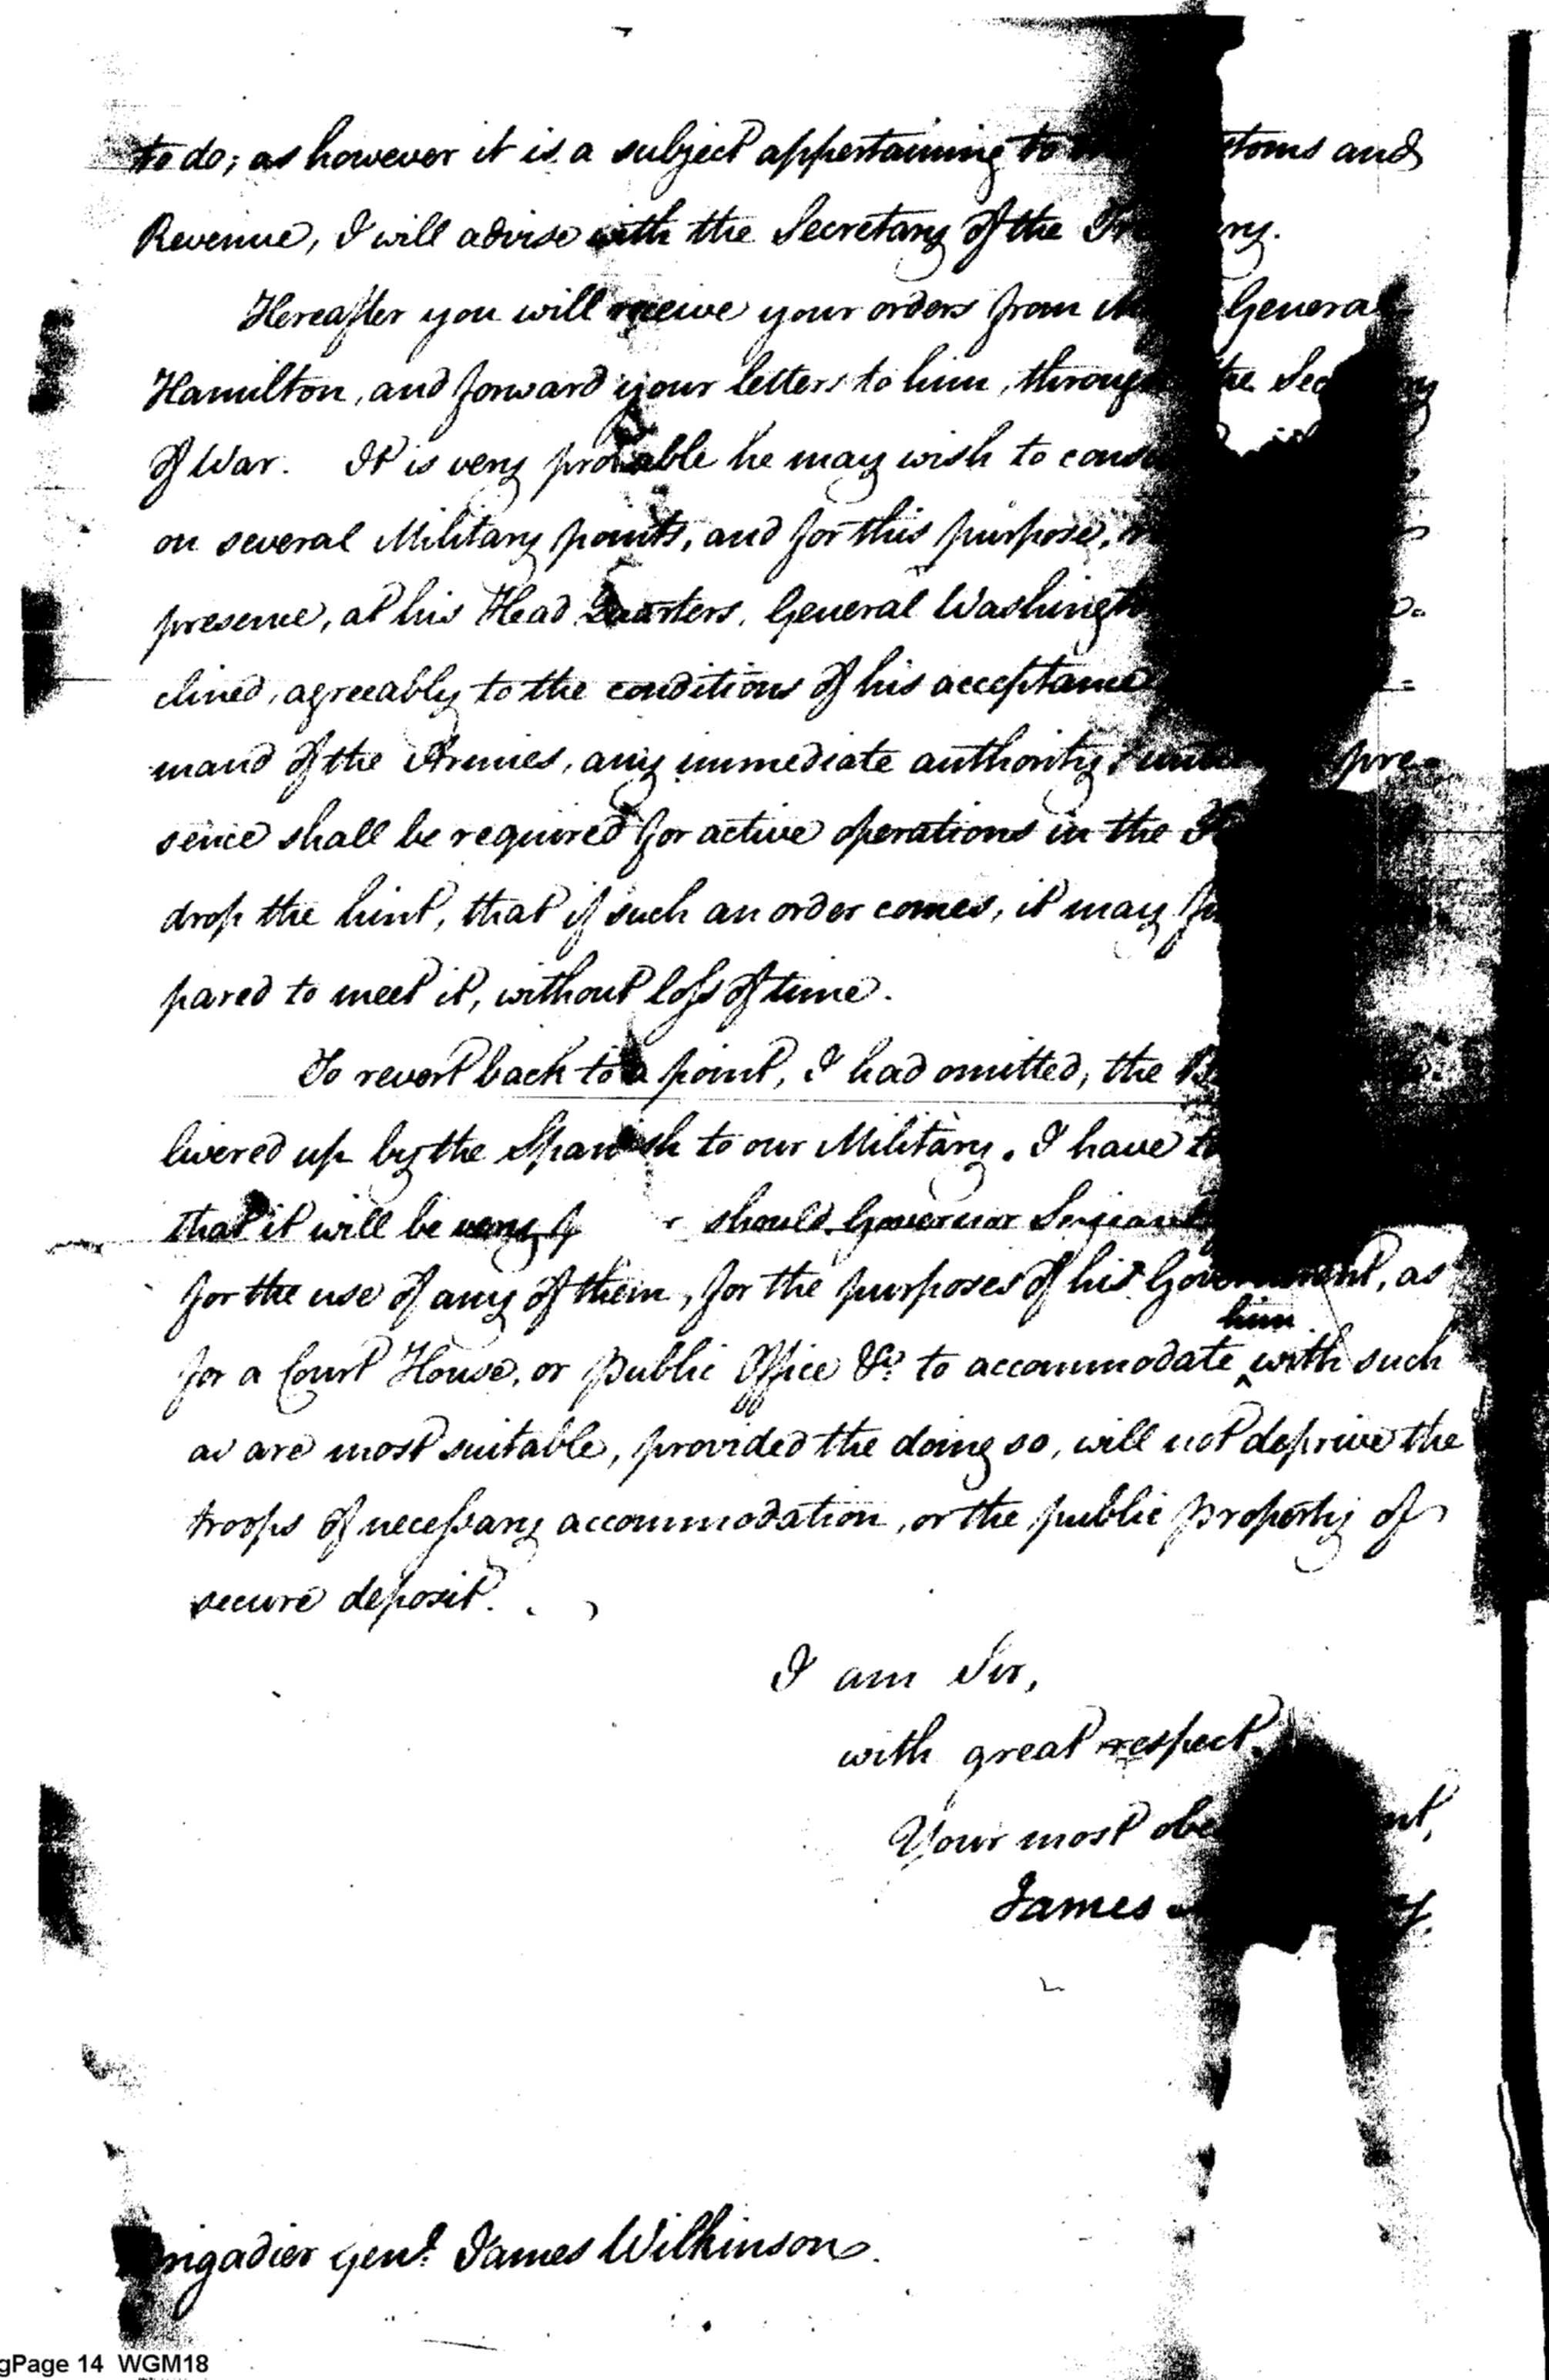 to do; as however it is a subject appertaining to and
Revenue, I will advise with the Secretary of the
Hereafter you will receive your orders from General
Hamilton, and forward your letters to him, through the
of War. It is very probable he may wish to
on several Military points, and for this purpose,
presence, at his Head Quarters. General
clined, agreeably to the conditions of his acceptance
mand of the Armies, any immediate authority, pre-
sence shall be required for active operations in the
drop the hint, that if such an order comes, it may
pared to meet it, without loss of time.
To revert back to a point, I had omitted, the
livered up by the Spanish to our Military. I have
that it will be very should Governor
for the use of any of them, for the purposes of his Government, as
for a Court House, or public Office &c. to accommodate him with such
as are most suitable, provided the doing so, will not deprive the
troops of necessary accommodation, or the public property of
secure deposit.
I am Sir,
with great respect,
Your most
James
General James Wilkinson.
gPage 14 WGM18